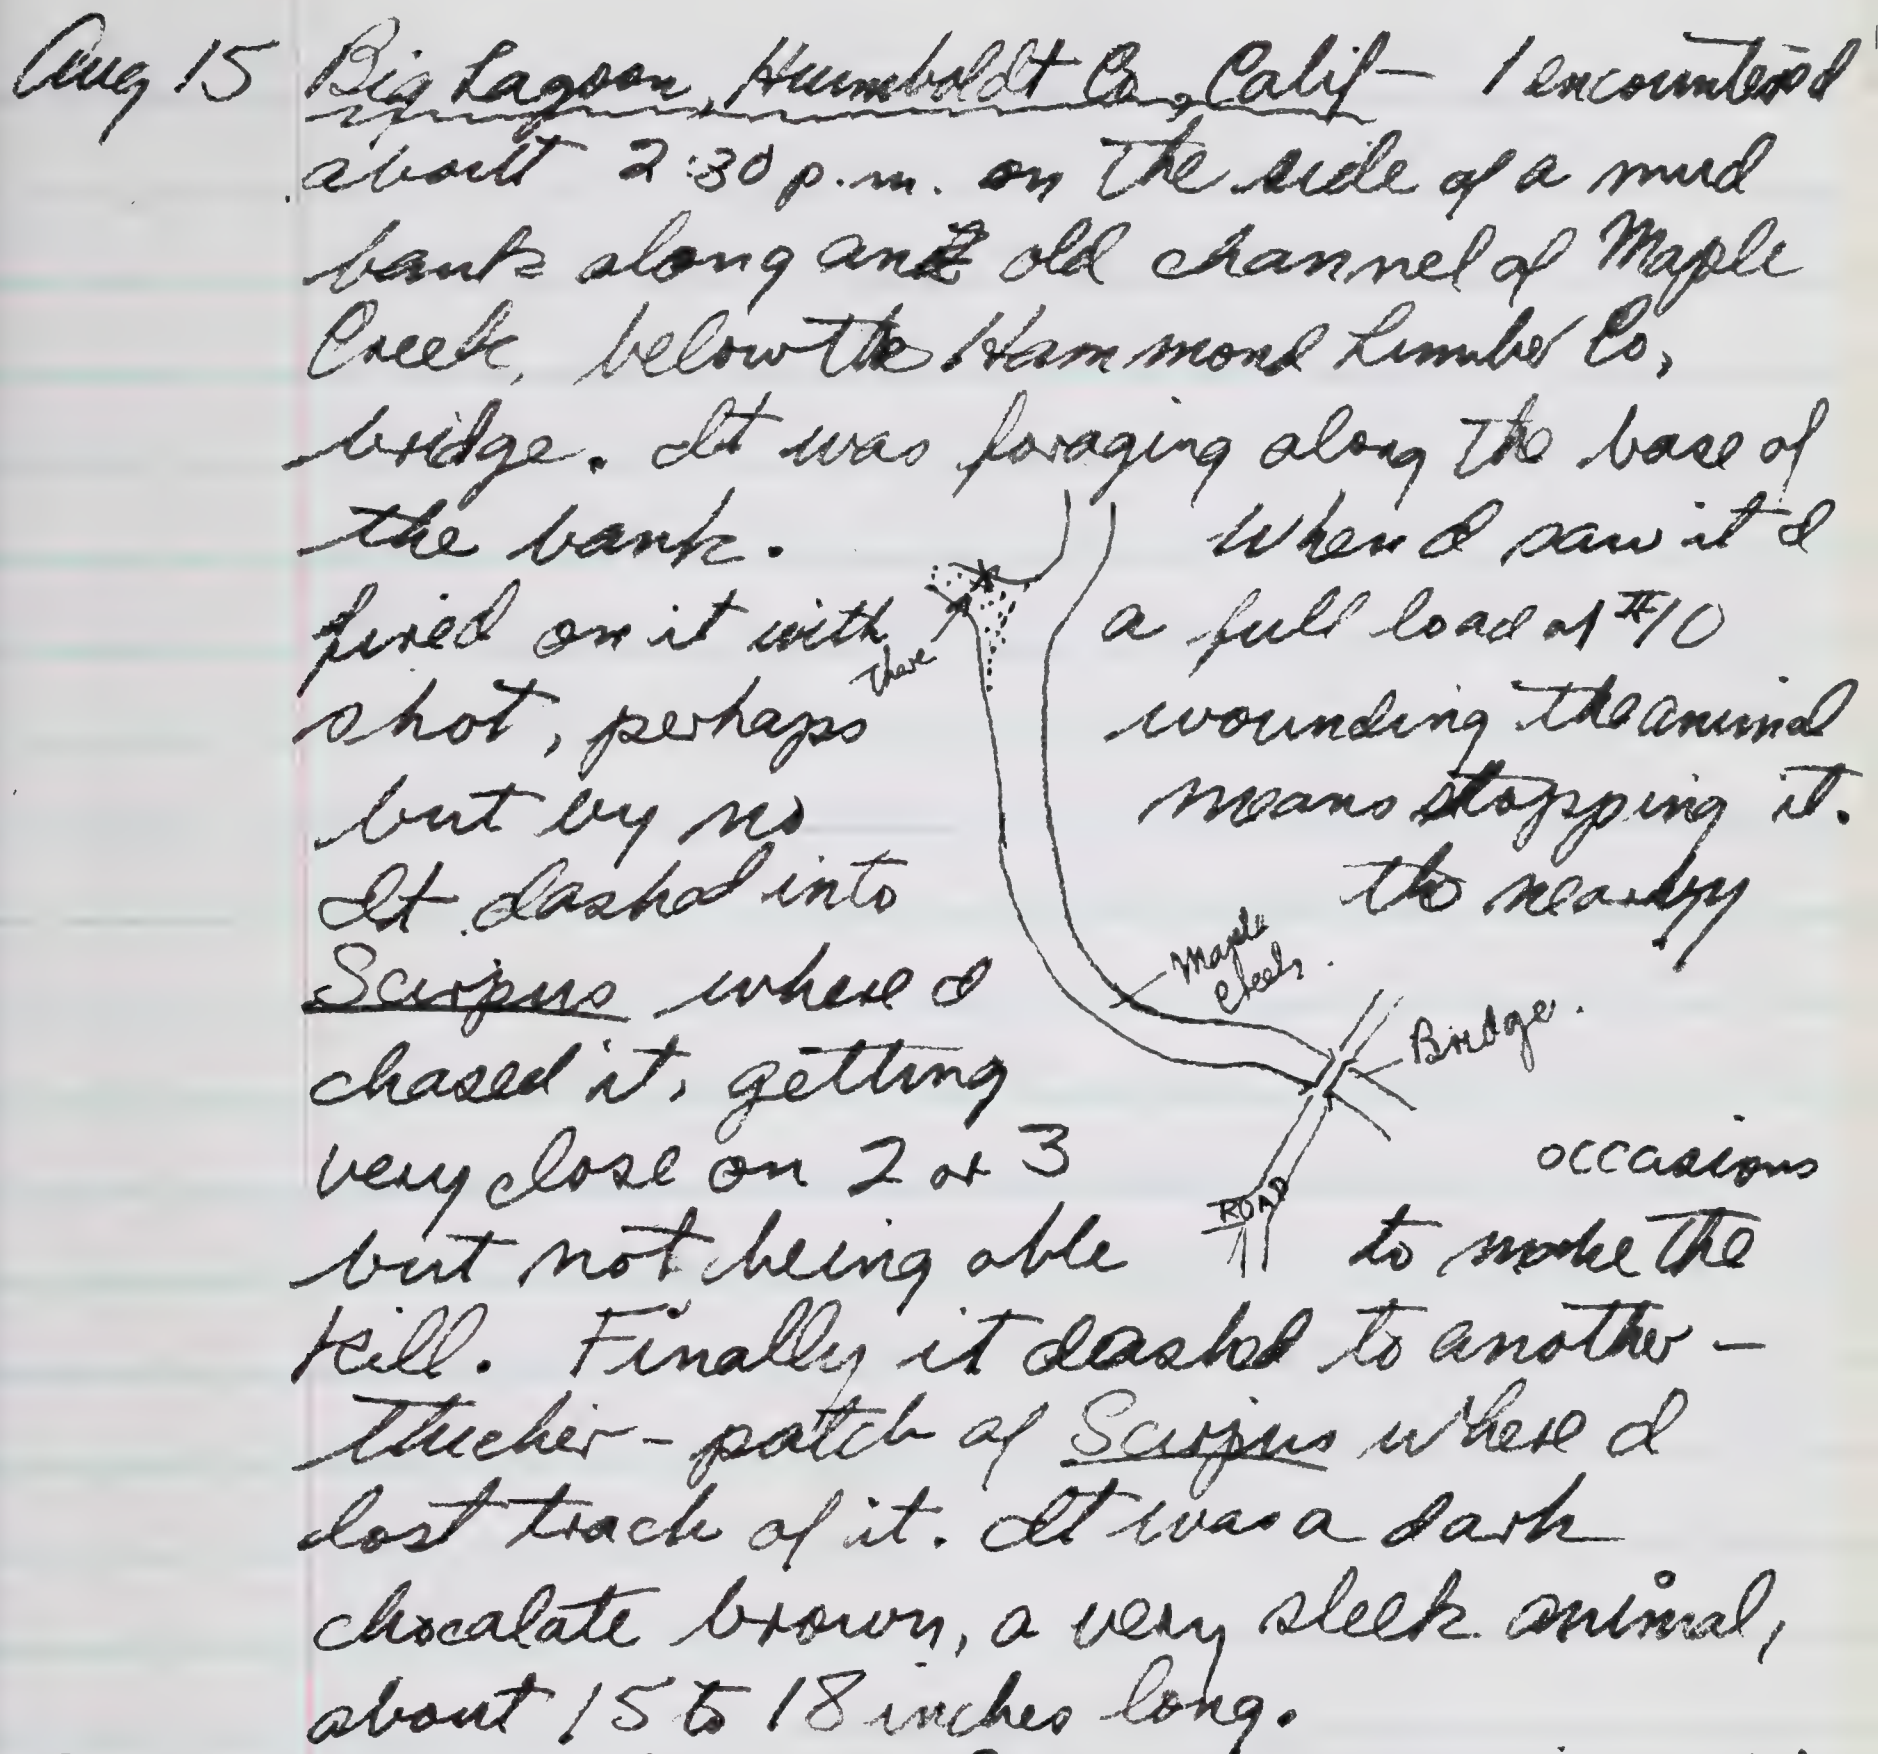 Aug 15 Big Lagoon, Humboldt Co., Calif — I encountered
about 2:30 p.m. on the side of a mud
bank along an old channel of Maple
Creek, below the Hammond Lumber Co,
bridge. It was foraging along the base of
the bank. When I saw it I
fired on it with a full load of #10
There
shot, perhaps wounding the animal
but by no means stopping it.
It dashed into the nearby
Maple
Creek.
Scirpus where I
Bridge.
chased it, getting
very close on 2 or 3 occasions
ROAD
but not being able to make the
kill. Finally it dashed to another —
thicker — patch of Scirpus where I
lost track of it. It was a dark
chocalate brown, a very sleek animal,
about 15 to 18 inches long.